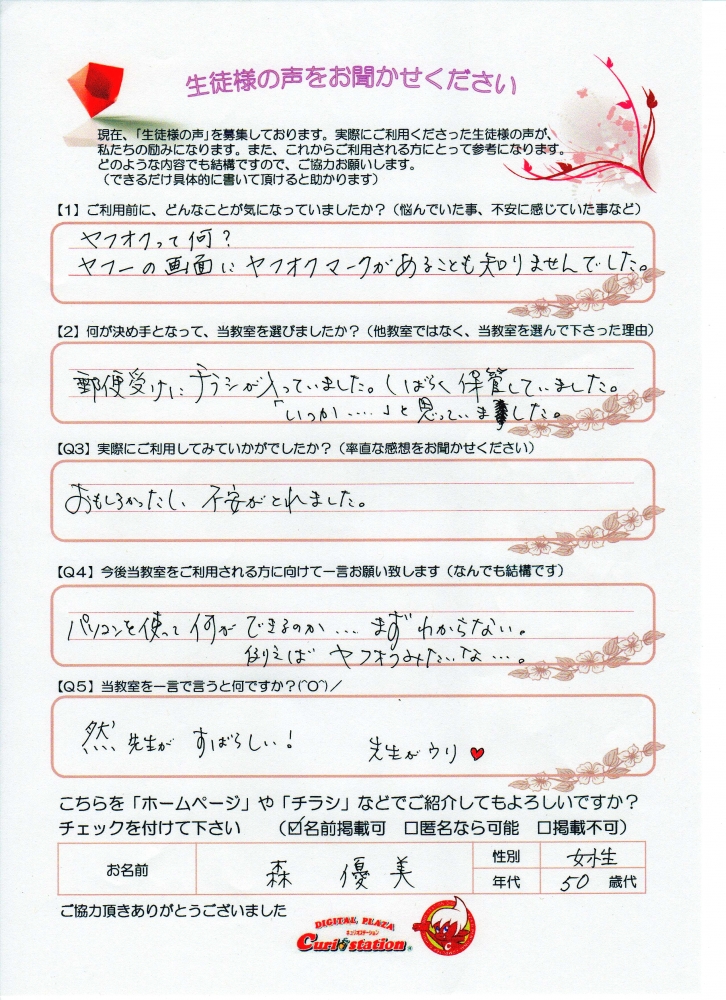 生徒様の声をお聞かせください
現在、「生徒様の声」を募集しております。実際にご利用くださった生徒様の声が、
私たちの励みになります。また、これからご利用される方にとって参考になります。
どのような内容でも結構ですので、ご協力お願いします。
（できるだけ具体的に書いて頂けると助かります）
【1】ご利用前に、どんなことが気になっていましたか？（悩んでいた事、不安に感じていた事など）
ヤフオクって何？
ヤフーの画面にヤフオクマークがあることも知りませんでした。
【2】何が決め手となって、当教室を選びましたか？（他教室ではなく、当教室を選んで下さった理由）
郵便受けにチラシが入っていました。しばらく保管していました。
「いつか……」と思っていました。
【Q3】実際にご利用してみていかがでしたか？（率直な感想をお聞かせください）
おもしろかったし、不安がとれました。
【Q4】今後当教室をご利用される方に向けて一言お願い致します（なんでも結構です）
パソコンを使って何ができるのか…まずわからない。
例えばヤフオクみたいな…。
【Q5】当教室を一言で言うと何ですか？(^O^)／
然 先生がすばらしい！ 先生がウリ♥
こちらを「ホームページ」や「チラシ」などでご紹介してもよろしいですか？
チェックを付けて下さい （☑名前掲載可 □匿名なら可能 □掲載不可）
お名前 森 優美 性別 女性
年代 50 歳代
ご協力頂きありがとうございました
DIGITAL PLAZA
キュリオステーション
Curio station